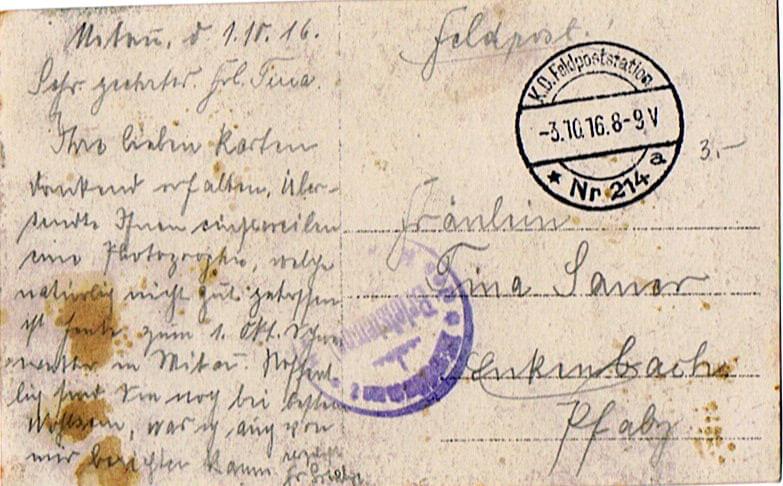 Mitau, d 1.10.16.
Sehr geehrtes Frl. Tina.
Ihre lieben Karten
dankend erhalten, Über-
sende Ihnen einstweilen
eine Photographie, welche
natürlig nicht gut getroffen
ist heute zum 1. Okt. Schnee
wetter in Mitau. Hoffent-
lig sind Sie nog bei bestem
Wohlsein, was ig aug von
mir berichten kann.
Feldpost.
K.D. Feldpoststation
-3.10.16.8-9V
★ Nr. 214 a
3.-
Fräulein
Tina Sauer
Enkenbach
Pfalz